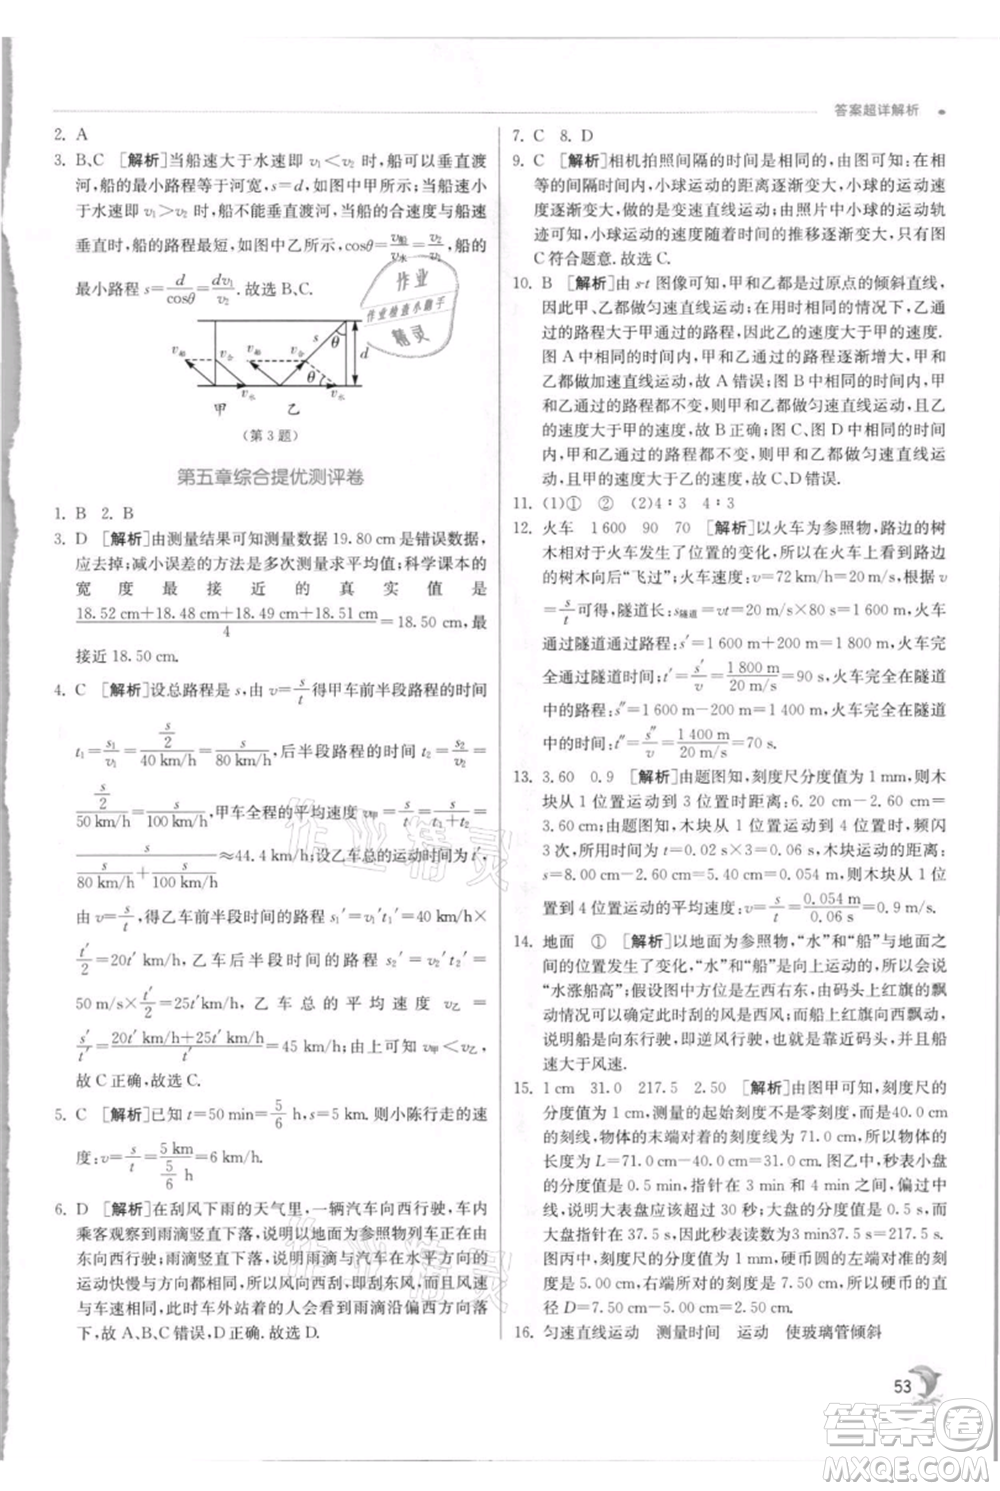 答案超详解析
2. A
3. B、C [解析]当船速大于水速即v₁<v₂时,船可以垂直渡
河,船的最小路程等于河宽,s=d,如图中甲所示;当船速小
于水速即v₁>v₂时,船不能垂直渡河,当船的合速度与船速
垂直时,船的路程最短,如图中乙所示,cosθ=v船/v水=v₂/v₁,船的
最小路程s=d/cosθ=dv₁/v₂.故选B、C.
v船 v合 v水 v船 v合 s θ d θ v水
甲 乙
(第3题)
第五章综合提优测评卷
1. B 2. B
3. D [解析]由测量结果可知测量数据19.80 cm是错误数据,
应去掉;减小误差的方法是多次测量求平均值;科学课本的
宽度最接近的真实值是
(18.52 cm+18.48 cm+18.49 cm+18.51 cm)/4=18.50 cm,最
接近18.50 cm.
4. C [解析]设总路程是s,由v=s/t得甲车前半段路程的时间
t₁=s₁/v₁=(s/2)/(40 km/h)=s/(80 km/h),后半段路程的时间t₂=s₂/v₂=
(s/2)/(50 km/h)=s/(100 km/h),甲车全程的平均速度v甲=s/t=
s/(s/(80 km/h)+s/(100 km/h))≈44.4 km/h;设乙车总的运动时间为t′,
由v=s/t,得乙车前半段时间的路程s₁′=v₁′t₁′=40 km/h×
t′/2=20t′km/h,乙车后半段时间的路程s₂′=v₂′t₂′=
50 m/s×t′/2=25t′km/h,乙车的平均速度v乙=
s′/t′=(20t′km/h+25t′km/h)/t′=45 km/h;由上可知v甲<v乙,
故C正确.故选C.
5. C [解析]已知t=50 min=5/6 h,s=5 km,则小陈行走的速
度:v=s/t=5 km/(5/6 h)=6 km/h.
6. D [解析]在刮风下雨的天气里,一辆汽车向西行驶,车内
乘客观察到雨滴竖直下落,说明以地面为参照物列车正在
向西行驶;雨滴竖直下落,说明雨滴与汽车在水平方向上的
运动快慢与方向都是一样的,说明风向西刮,即刮东风,且风速
与车速相等,此时车外站着的人会看到雨滴沿偏西方向落
下,故A、B、C错误,D正确.故选D.
7. C 8. D
9. C [解析]相机拍照间隔的时间是相同的,由图可知:在相
等的间隔时间内,小球运动的距离逐渐变大,小球的运动速
度逐渐变大,做的是变速直线运动;由照片中小球的运动轨
迹可知,小球运动的速度随着时间的推移逐渐变大,所以图
C符合题意.故选C.
10. B [解析]由s-t图像可知,甲和乙都是过原点的倾斜直线,
因此甲、乙都做匀速直线运动;在时间相同的情况下,乙通过
的路程大于甲通过的路程,所以乙的速度大于甲的速度.
图A中相同时间内,甲和乙通过的路程逐渐增大,甲和
乙都做加速直线运动,故A错误;图B中相同的时间内,
甲和乙通过的路程都不变,则甲和乙都做匀速直线运动,
且甲的速度小于乙的速度,故B正确;图C、D中相同的时
间内,甲和乙通过的路程都不变,则甲和乙都做匀速直线运
动,且甲的速度大于乙的速度,故C、D错误.
11. (1)① ② (2)4∶3 4∶3
12. 火车 1 600 90 70 [解析]以火车为参照物,路边的树
木相对于火车发生了位置的变化,所以车内的人看到路边
的树木向后“飞过”;火车速度:v=72km/h=20 m/s,由v
=s/t可得,隧道长:s隧道=vt=20 m/s×80 s=1 600 m,火车
通过隧道通过路程:s′=1 600 m+200 m=1 800 m,火车完
全通过隧道时间:t′=s′/v=1 800 m/20 m/s=90 s,火车全部在隧道
中的路程:s″=1 600 m-200 m=1 400 m,火车全部在隧道
中的运动时间:t″=s″/v=1 400 m/20 m/s=70 s.
13. 3.60 0.9 [解析]由题图知,刻度尺分度值为1 mm,则木
块从1位置运动到3位置时距离:6.20 cm-2.60 cm=
3.60 cm;由题图知,木块从1位置到4位置的时候,频闪
3次,所用时间:t=0.02 s×3=0.06 s,木块运动的距离:
s=8.00 cm-2.60 cm=5.40 cm=0.054 m,木块从1位
置到4位置的平均速度:v=s/t=0.054 m/0.06 s=0.9 m/s.
14. 地面 ① [解析]以地面为参照物,“水”和“船”与地面之
间的位置发生了变化,“水”和“船”是向上运动的,所以说
“水涨船高”;假设图片是左西右东,由码头上红旗的飘
动情况可知此时刮的风是西风;而船上红旗向西飘动,
说明船是向东行驶,是逆风行驶,可以靠近码头,并且船
速大于风速.
15. 1 cm 31.0 217.5 2.50 [解析]由图甲可知,刻度尺的
分度值为1 cm,测量的起始刻度不是零刻度,而是40.0 cm
的刻线,物体的末端对着的刻度为71.0 cm,所以物体的长
度为L=71.0 cm-40.0 cm=31.0 cm.图乙中,秒表小盘
的分度值是0.5 min,指针在3 min和4 min之间,偏过中线,
说明大表盘应该超过30秒;大盘的分度值是0.5 s,指针在
37.5 s处,所以停表读数为3 min37.5 s=217.5 s.
图丙中,刻度尺的分度值为1 mm,硬币圆的左端对准的刻度是
5.00 cm,右端所对的刻度是7.50 cm,所以硬币的直
径D=7.50 cm-5.00 cm=2.50 cm.
16. 匀速直线运动 测量时间 运动 使玻璃管倾斜
53
作业
作业检查小助手
精灵
作业精灵
作业精灵
答案卷
MXQE.COM